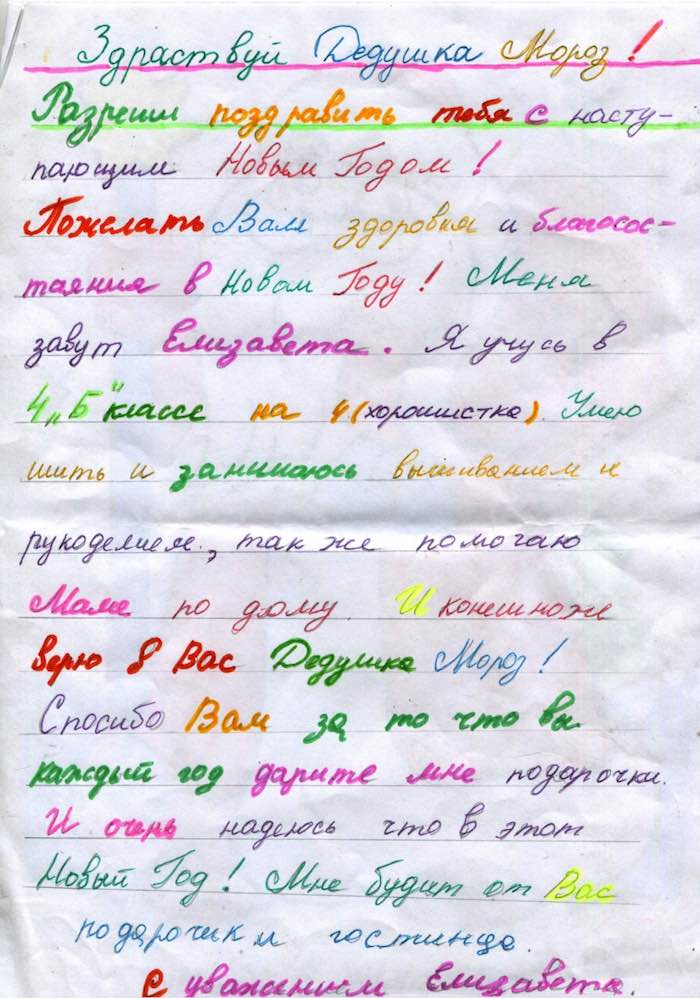 Здраствуй Дедушка Мороз!
Разреши поздравить тебя с насту-
пающим Новым Годом!
Пожелать Вам здоровия и благосос-
таяния в Новом Году! Меня
завут Елизавета. Я учусь в
4 „Б" классе на 4 (хорошистка). Умею
шить и занимаюсь вышиванием и
рукоделием., так же помогаю
Маме по дому. И конешноже
верю в Вас Дедушка Мороз!
Спосибо Вам за то что вы
каждый год дарите мне подарочки.
И очень надеюсь что в этот
Новый Год! Мне будит от Вас
подарочик и гостинцы.
С уважением Елизавета.